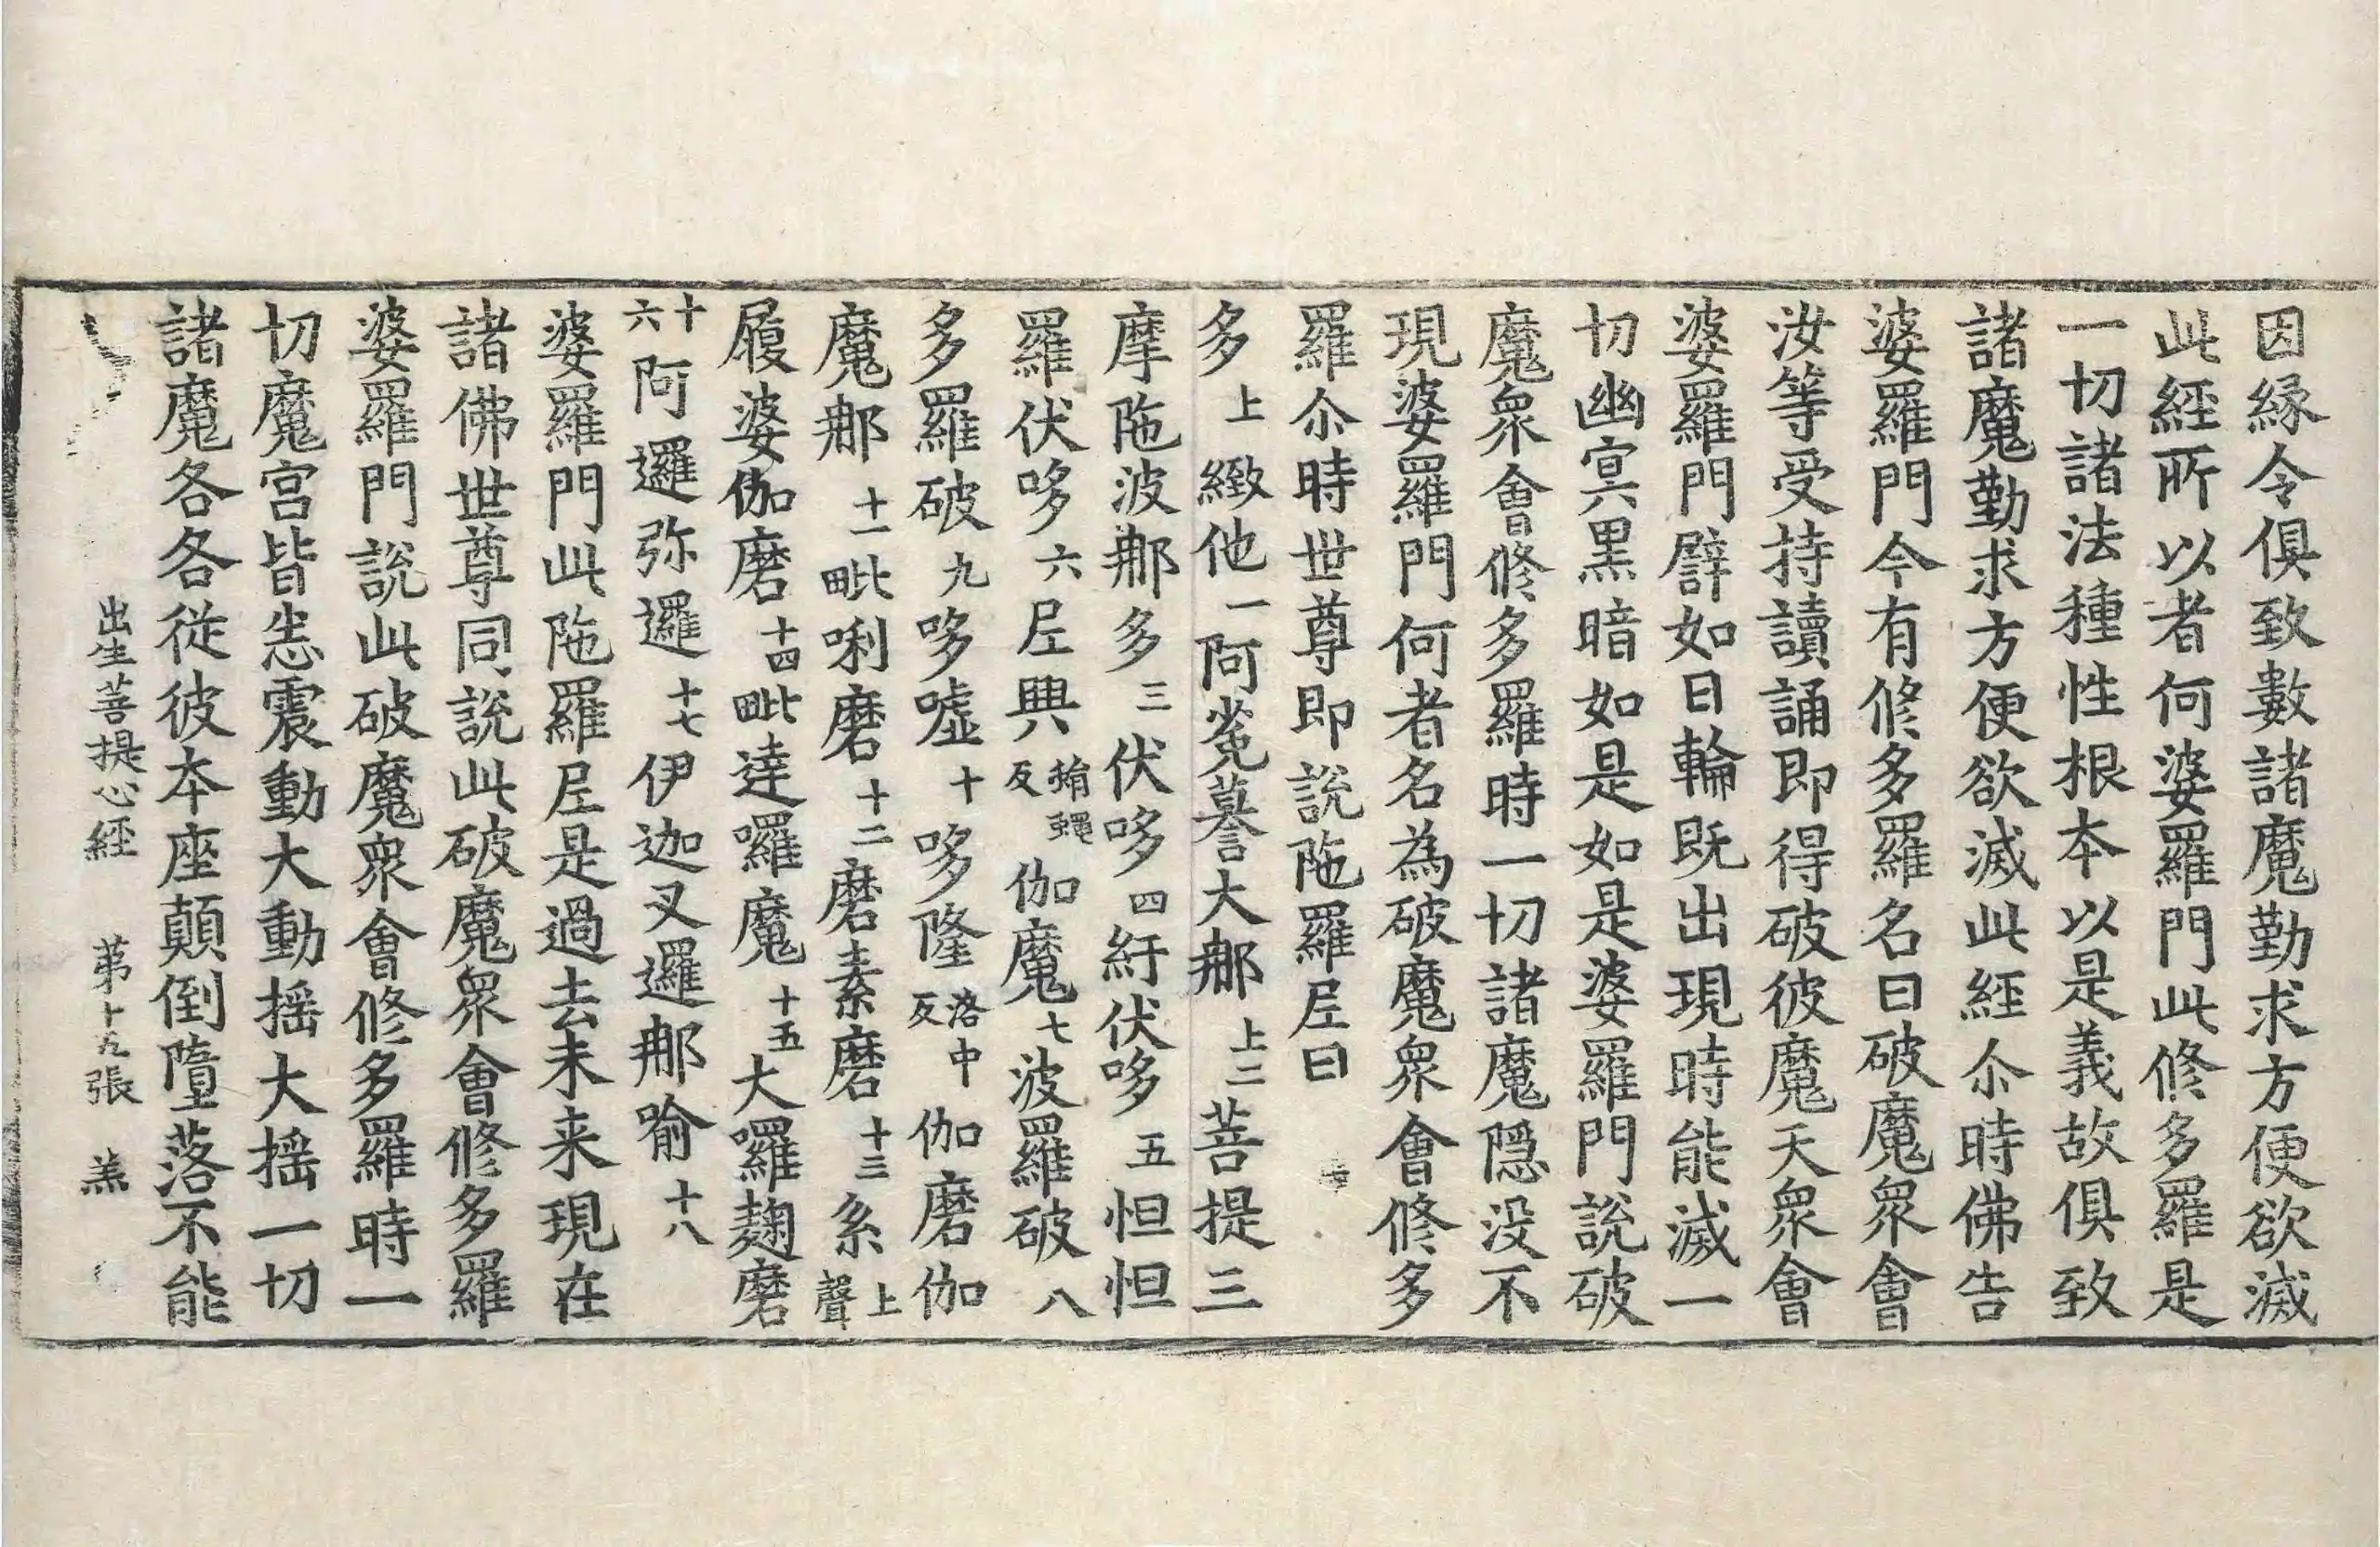 因縁令俱致數諸魔勤求方便欲滅
此經所以者何婆羅門此修多羅是
一切諸法種性根本以是義故俱致
諸魔勤求方便欲滅此經尒時佛告
婆羅門今有修多羅名曰破魔衆會
汝等受持讀誦即得破彼魔天衆會
婆羅門譬如日輪既出現時能滅一
切幽冥黑暗如是如是婆羅門說破
魔衆會修多羅時一切諸魔隱没不
現婆羅門何者名為破魔衆會修多
羅尒時世尊即說陁羅𡰱曰
多上緻他一阿菟摹大郍上二菩提三
摩陁波郍多三伏哆四紆伏哆五怛怛
羅伏哆六𡰱興反伽魔七波羅破八
多羅破九哆嘘十哆隆洛中反伽磨伽
魔郍十一毗唎磨十二磨素磨十三系上聲
履婆伽磨十四毗達囉魔十五大囉麹磨
十六阿邏弥邏十七伊迦叉邏郍喻十八
婆羅門此陁羅𡰱是過去未来現在
諸佛世尊同說此破魔衆會修多羅
婆羅門說此破魔衆會修多羅時一
切魔宫皆悉震動大動摇大摇一切
諸魔各各從彼本座顛倒墮落不能
出生菩提心經 苐十九張 羔